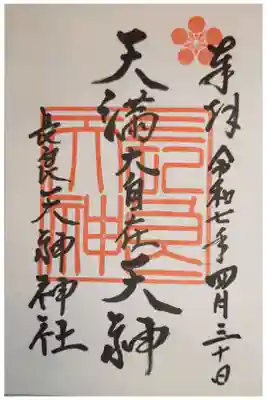 奉拝 令和七年四月三十日
天満大自在天神
長良天神神社
長良
天神